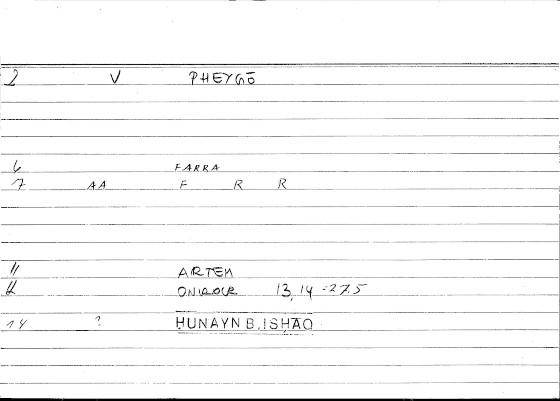 2 V PHEYGŌ
6 FARRA
7 AA F R R
11 ARTEM
12 ONIROCR 13,14 = 27.5
14 ? ḤUNAYN B. ISḤĀQ